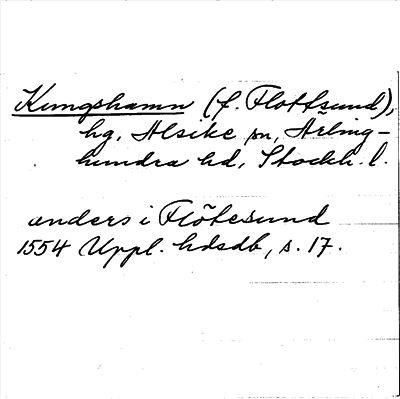 Kungshamn (f. Flottsund),
hg, Alsike sn, Ärling-
hundra hd, Stockh. l.
anders i Flötesund
1554 Uppl. hdsdb, s. 17.